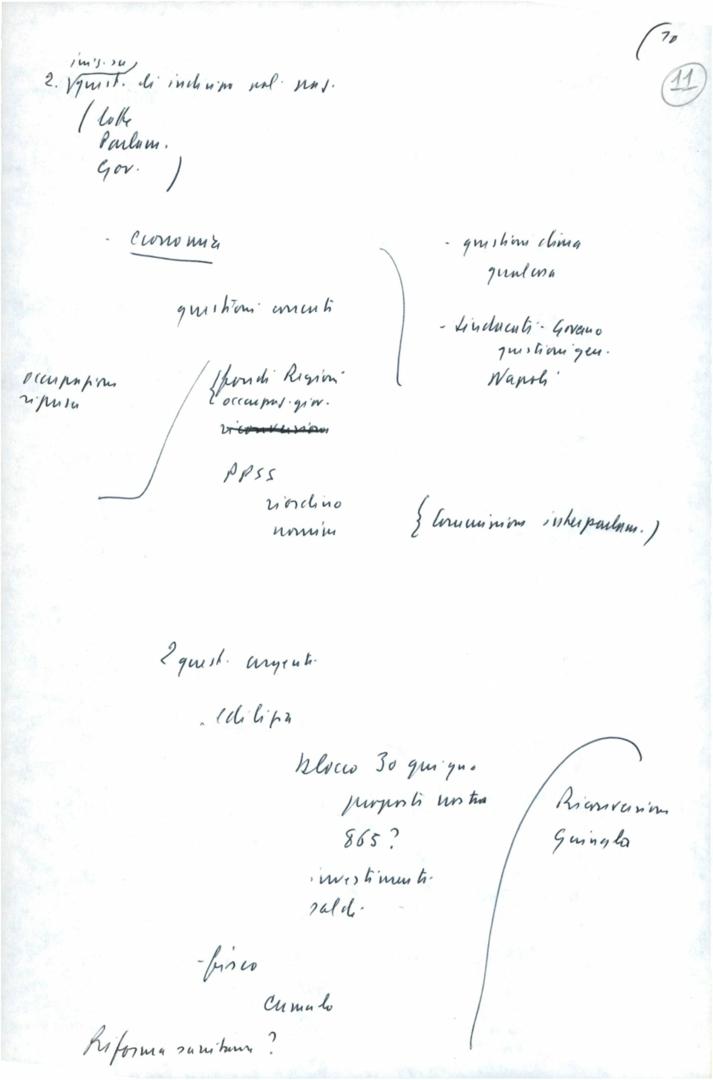 10
11
iniz. su
2. quest. di
(lotte
Parlam.
Gov. )
- economia
questioni correnti
occupazione
ripresa
{ fondi Regioni
{ occupaz. giov.
riconversione
PPSS
riordino
nomine
- questioni clima
qualcosa
- sindacati - Governo
questioni gen.
Napoli
{ Commissione interparlam. )
2 quest. urgenti
- edilizia
blocco 30 giugno
proposte nostre
865?
investimenti
saldi
Riconversione
Guinala
- fisco
cumulo
Riforma sanitaria ?